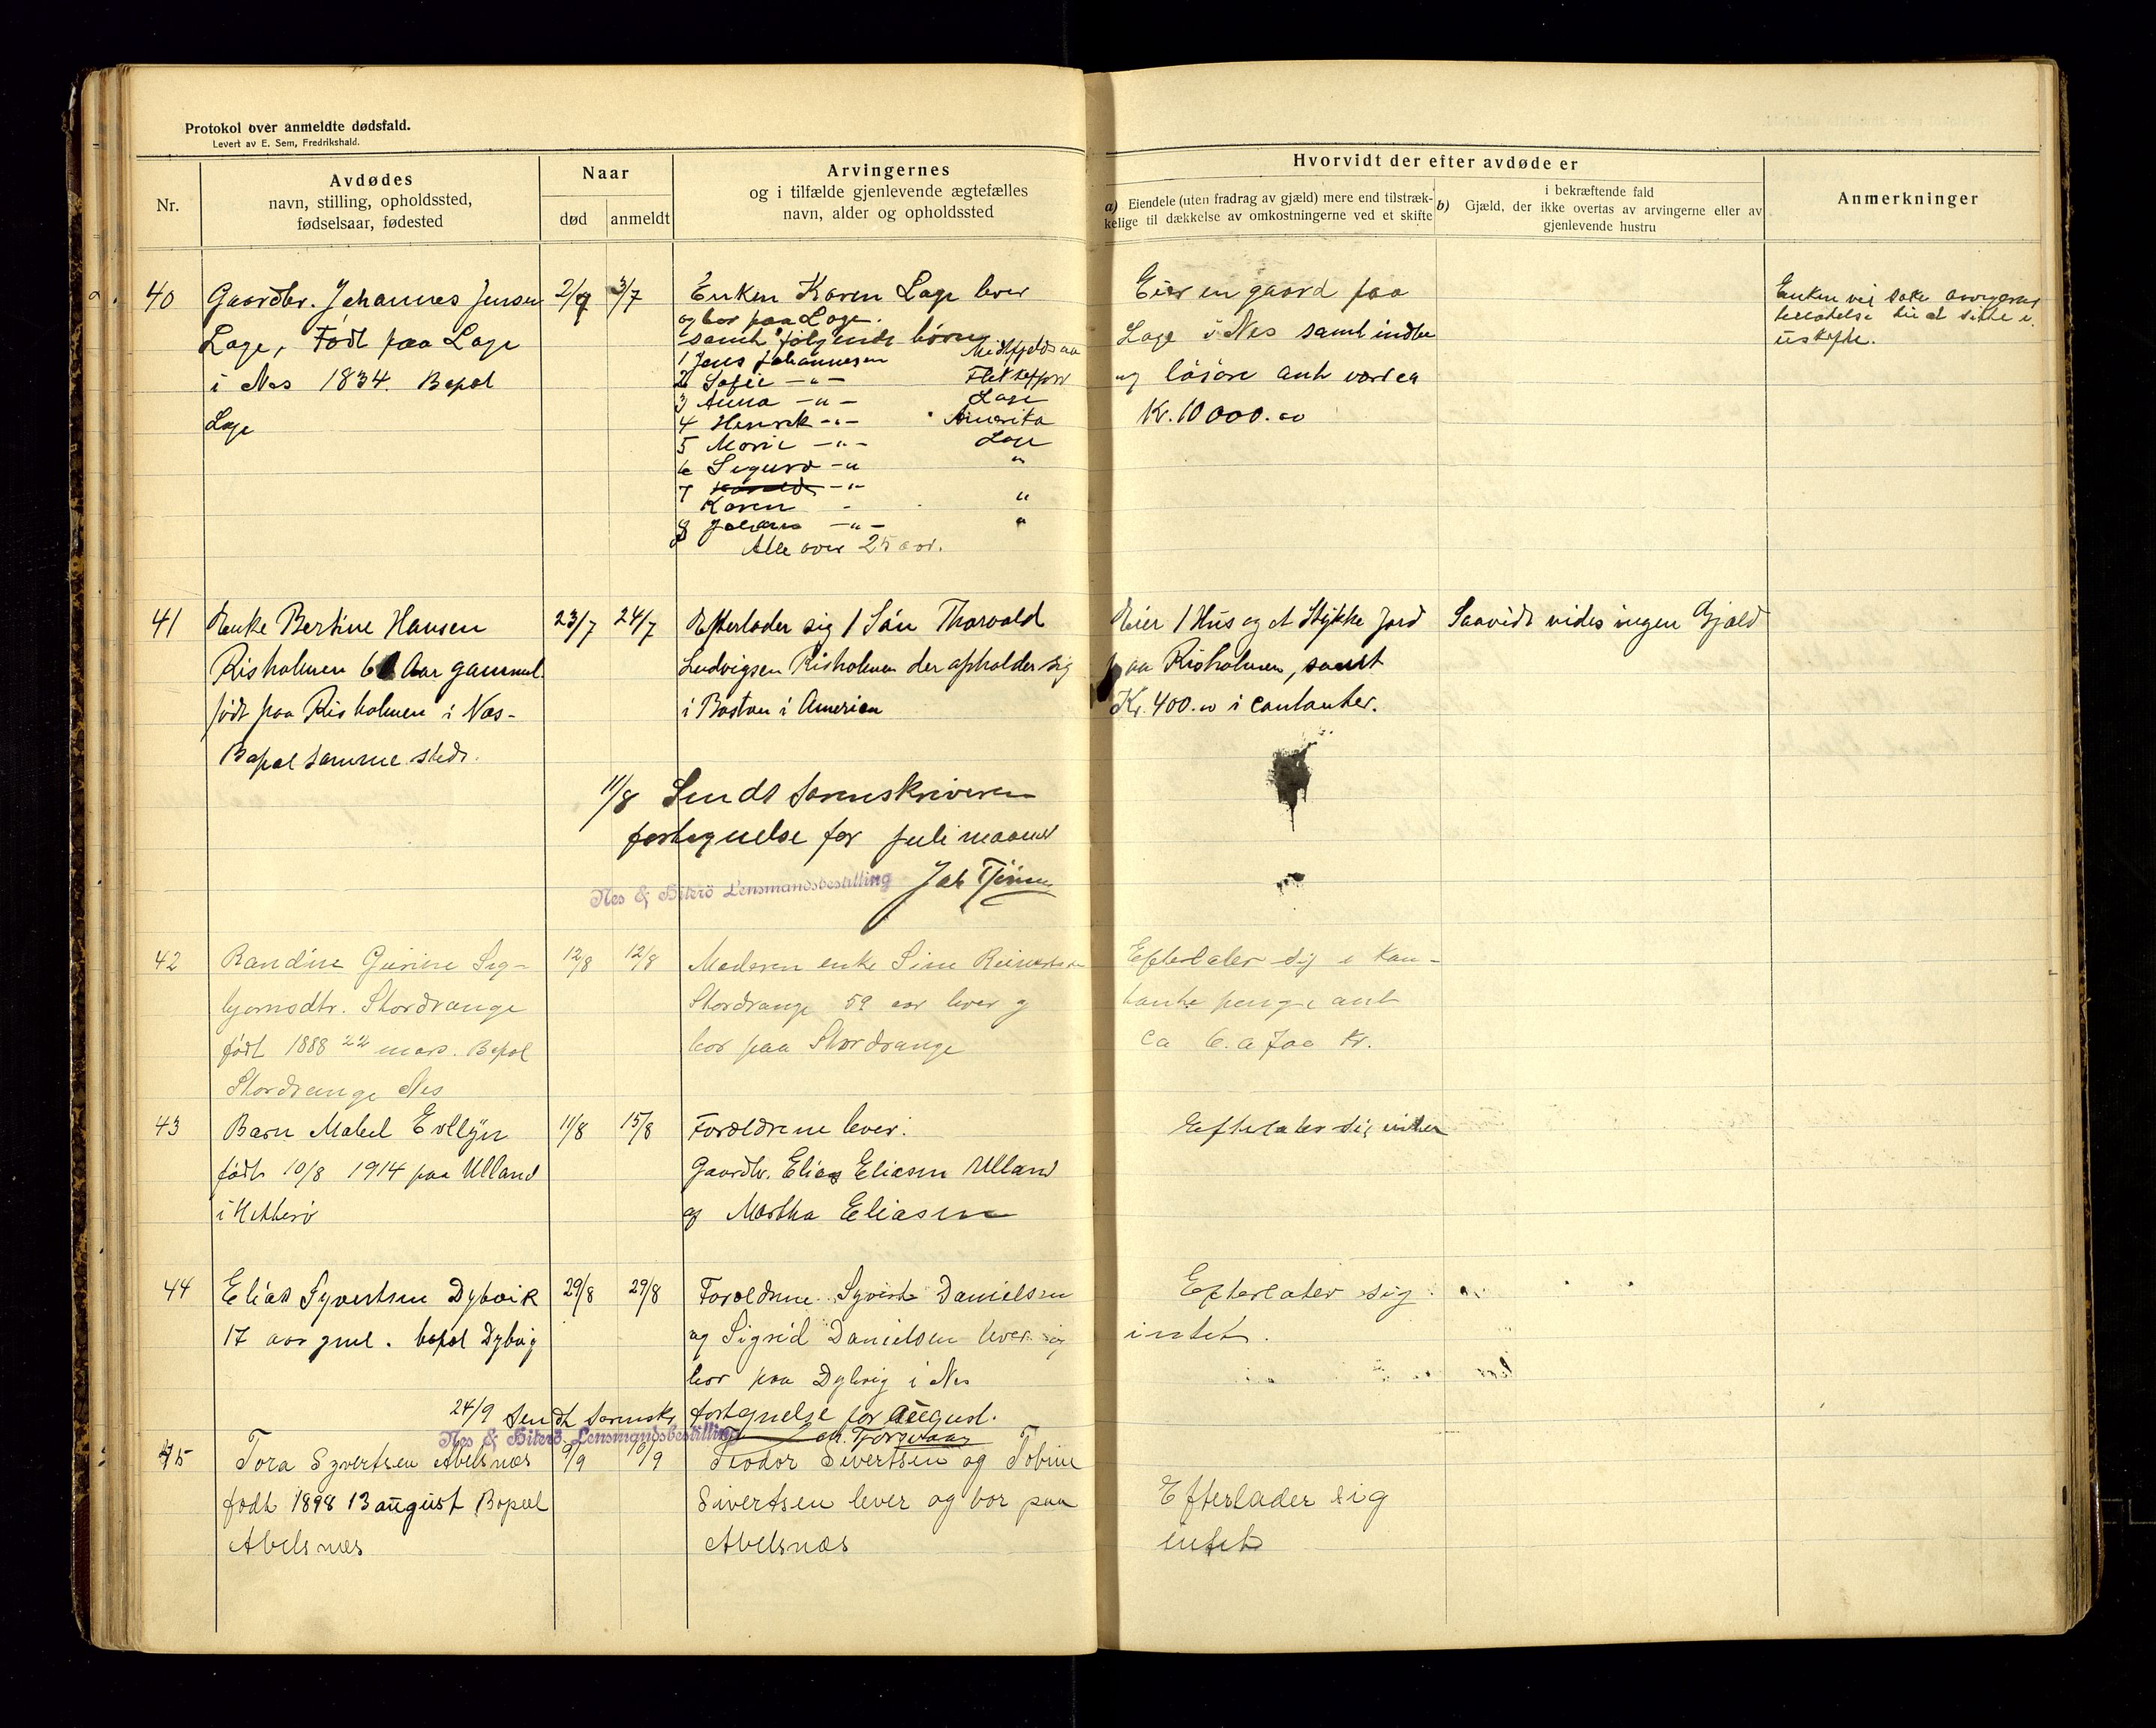 Protokol over anmeldte dødsfald.
Levert av E. Sem, Fredrikshald.
Nr.
Avdødes
navn, stilling, opholdssted,
fødselsaar, fødested
Naar
død
anmeldt
Arvingernes
og i tilfælde gjenlevende ægtefælles
navn, alder og opholdssted
Hvorvidt der efter avdøde er
a) Eiendele (uten fradrag av gjæld) mere end tilstræk-
kelige til dækkelse av omkostningerne ved et skifte
i bekræftende fald
b) Gjæld, der ikke overtas av arvingerne eller av
gjenlevende hustru
Anmerkninger
40
Gaardbr. Johannes Jensen
Loge, Født paa Loge
i Nes 1834. Bopæl
Loge
2/7
3/7
Enken Karen Loge lever
og bor paa Loge.
samt følgende børn
1 Jens Johannesen
2 Sofie - " - Flekkefjord
3 Anna - " - Loge
4 Henrik - " - Amerika
5 Marie - " - Loge
6 Sigurd - " "
7 Karen "
8 - " - "
Alle over 25 aar.
Eier en gaard paa
Loge i Nes samt indbo
og løsøre ant værd ca
Kr. 10 000.00
Enken vil søke arvingernes
tilladelse til at sitte i
uskifte.
41
Enke Bertine Hansen
Risholmen 61 Aar gammel
født paa Risholmen i Næs-
Bopæl samme sted.
23/7
24/7
Efterlader sig 1 Søn Thorvald
Ludvigsen Risholmen der opholder sig
i Boston i America
Eier 1 Hus og et Stykke Jord
paa Risholmen, samt
Kr. 400.00 i contanter.
Saavidt vides ingen Gjæld
11/8 Sendt sorenskriveren
fortegnelse for juli maaned
Nes & Hiterö Lensmandsbestilling
42
Randine Gurine Sig-
bjørnsdtr. Stordrange
født 1888 22 mars. Bopæl
Stordrange Nes
12/8
12/8
Moderen enke Sine
Stordrange 59 aar lever og
bor paa Stordrange
Efterlater sig i kon-
tante penge ant
ca 6. a 700 kr.
43
Barn Mabel Evllyn
født 10/8 1914 paa Ulland
i Hitterø
11/8
15/8
Forældrene lever.
Gaardbr. Elias Eliasen Ulland
og Martha Eliasen
Efterlater sig intet
44
Elias Syvertsen Dybvik
17 aar gml. bopæl Dybvig
29/8
29/8
Forældrene Syvert Danielsen
og Sigrid Danielsen lever og
bor paa Dybvig i Nes
Efterlater sig
intet.
24/9 Sendt sorensks fortegnelse for august.
Nes & Hiterö Lensmandsbestilling
45
Tora Syvertsen Abelsnæs
født 1898 13 august Bopæl
Abelsnæs
9/9
10/9
Teodor Sivertsen og Tobine
Sivertsen lever og bor paa
Abelsnæs
Efterlader sig
intet